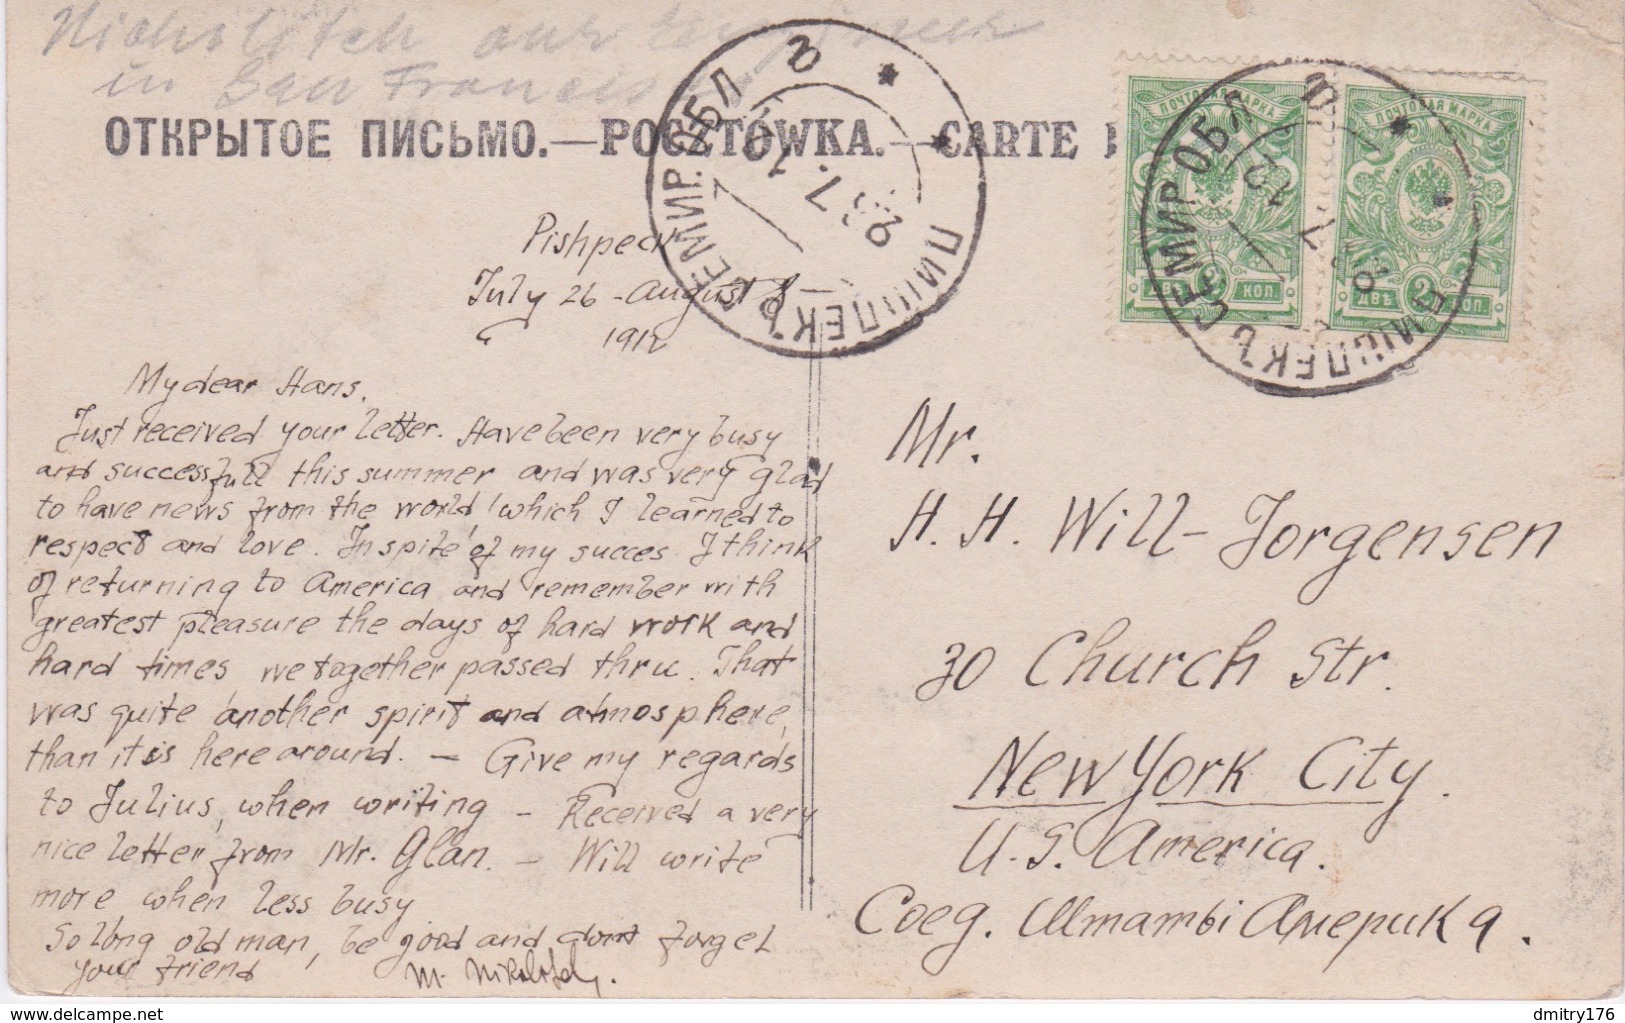 in San Francisco
ОТКРЫТОЕ ПИСЬМО.—POCZTÓWKA.—CARTE
ПИШПЕКЪ СЕМИР. ОБЛ
26.7.12
ПОЧТОВАЯ МАРКА
ДВѢ 2 КОП.
ПОЧТОВАЯ МАРКА
ДВѢ 2 КОП.
ПИШПЕКЪ СЕМИР. ОБЛ
Pishpeck
July 26 - August 8 —
1912
My dear Hans,
Just received your letter. Have been very busy
and successfull this summer and was very glad
to have news from the world which I learned to
respect and love. In spite of my succes I think
of returning to America and remember with
greatest pleasure the days of hard work and
hard times we together passed thru. That
was quite another spirit and atmosphere,
than it is here around. — Give my regards
to Julius, when writing — Received a very
nice letter from Mr. Glan. — Will write
more when less busy
So long old man, be good and dont forget
your friend M.
Mr.
H. H. Will-Jorgensen
30 Church Str.
New York City.
U. S. America.
Соед. Штаты Америка.
delcampe.net
dmitry176